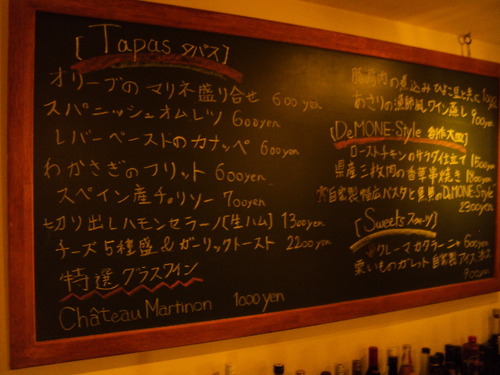 [Tapas タパス]
オリーブのマリネ盛り合せ 600yen
スパニッシュオムレツ 600yen
レバーペーストのカナッペ 600yen
わかさぎのフリット 600yen
スペイン産チョリソー 700yen
切り出しハモンセラーノ[生ハム] 1300yen
チーズ5種盛&ガーリックトースト 2200yen
特選グラスワイン
Château Martinon 1000yen
の煮込み ひよこ豆と
あさりの漁師風ワイン蒸し 900yen
[DeMONE-Style 創作大皿]
ローストチモンのサラダ仕立て 1500yen
県産三枚肉の香草串焼き 1800yen
自家製幅広パスタと魚貝のDeMONEStyle
2300yen
[Sweets スイーツ]
クレーマカタラーニャ 600yen
栗いものガレット 自家製アイス
900yen